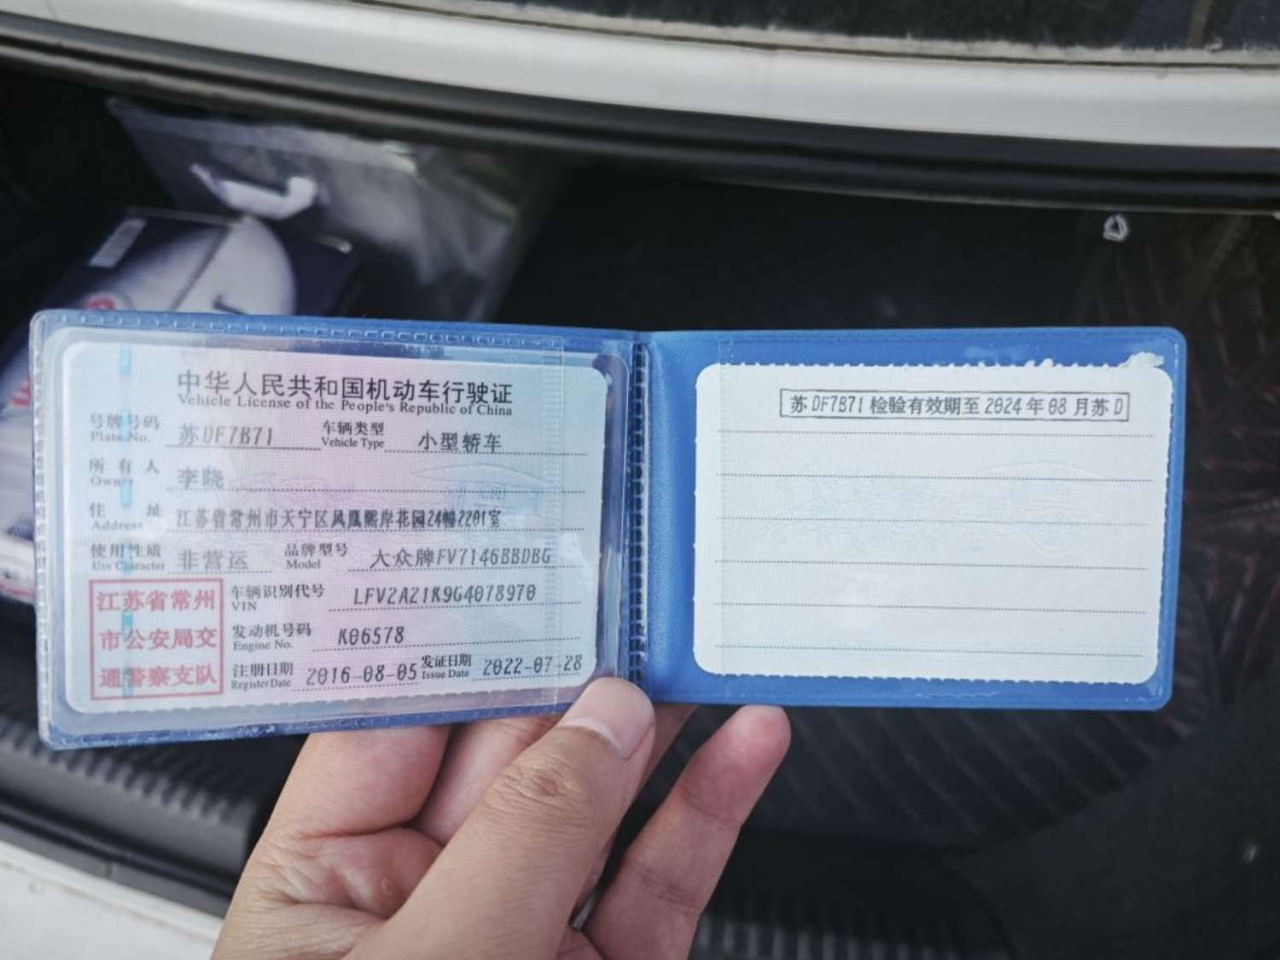 中华人民共和国机动车行驶证
Vehicle License of the People's Republic of China
号牌号码 苏DF7B71 车辆类型 小型轿车
Plate No. Vehicle Type
所有人 李晓
Owner
住址 江苏省常州市天宁区凤凰熙岸花园24幢2201室
Address
使用性质 非营运 品牌型号 大众牌FV7146BBDBG
Use Character Model
江苏省常州
市公安局交
通警察支队
车辆识别代号 LFV2A21K9G4078970
VIN
发动机号码 K06578
Engine No.
注册日期 2016-08-05 发证日期 2022-07-28
Register Date Issue Date
苏DF7B71检验有效期至2024年08月苏D